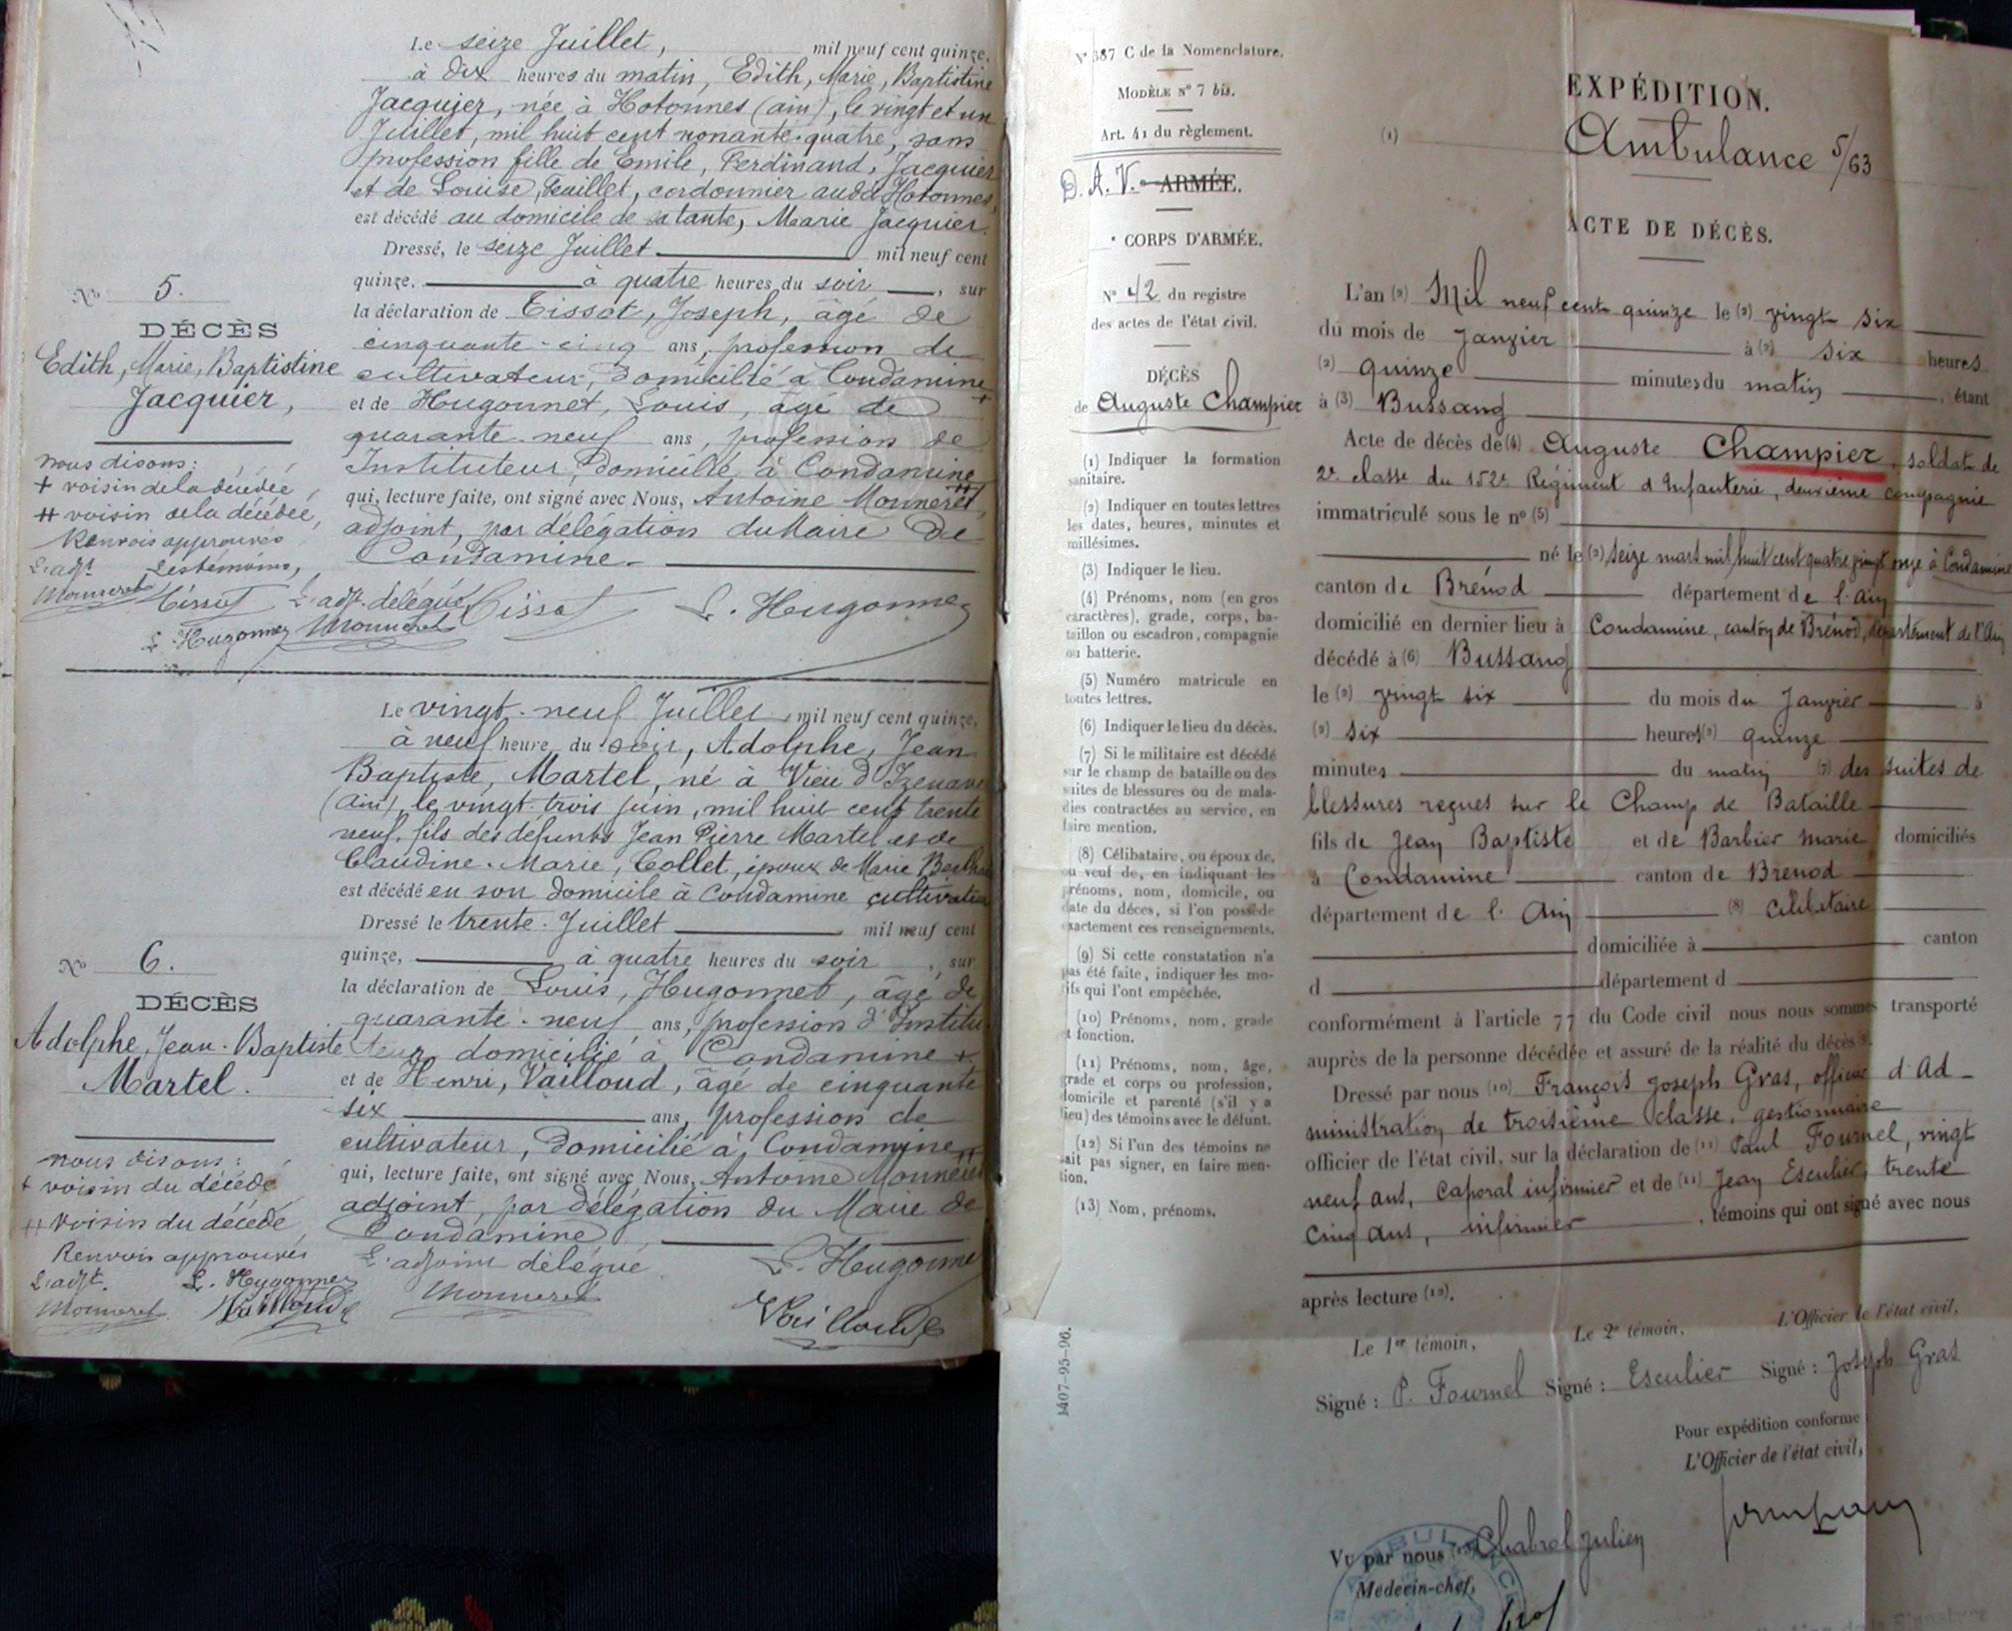 Le seize Juillet, mil neuf cent quinze.
à dix heures du matin, Edith, Marie, Baptistine
Jacquier, née à Hotonnes (ain), le vingt et un
Juillet, mil huit cent nonante-quatre, sans
profession fille de Emile, Ferdinand, Jacquier
et de Louise, Feuillet, cordonnier audit Hotonnes,
est décédé au domicile de sa tante, Marie Jacquier.
Dressé, le seize Juillet mil neuf cent
quinze. à quatre heures du soir, sur
la déclaration de Tissot, Joseph, âgé de
cinquante-cinq ans, profession de
cultivateur, domicilié à Condamine +
et de Hugonnet, Louis, âgé de
quarante-neuf ans, profession de
Instituteur, domicilié à Condamine ++
qui, lecture faite, ont signé avec Nous, Antoine Monneret,
adjoint, par délégation du Maire de
Condamine.
L'adjt délégué Tissot L. Hugonnet
Monneret
No 5.
DÉCÈS
Edith, Marie, Baptistine
Jacquier,
nous disons:
+ voisin de la décédée,
++ voisin de la décédée,
Renvois approuvés
L'adjt Les témoins,
Monneret Tissot
L. Hugonnet
Le vingt-neuf Juillet, mil neuf cent quinze,
à neuf heure du soir, Adolphe, Jean
Baptiste, Martel, né à Vieu d'Izenave
(Ain), le vingt-trois juin, mil huit cent trente
neuf, fils des défunts Jean Pierre Martel et de
Claudine-Marie, Collet, époux de Marie
est décédé en son domicile à Condamine cultivateur
Dressé le trente-Juillet mil neuf cent
quinze, à quatre heures du soir, sur
la déclaration de Louis, Hugonnet, âgé de
quarante-neuf ans, profession d'Institu-
teur domicilié à Condamine +
et de Henri, Vailloud, âgé de cinquante
six ans, profession de
cultivateur, domicilié à Condamine ++
qui, lecture faite, ont signé avec Nous, Antoine Monneret
adjoint, par délégation du Maire de
Condamine
L'adjoint délégué L. Hugonnet
Monneret Vailloud
No 6.
DÉCÈS
Adolphe, Jean-Baptiste
Martel.
nous disons:
+ voisin du décédé
++ voisin du décédé
Renvois approuvés
L'adjt. L. Hugonnet
Monneret Vailloud
No 387 C de la Nomenclature.
MODÈLE No 7 bis.
Art. 41 du règlement.
D. A. V. ARMÉE.
CORPS D'ARMÉE.
No 42 du registre
des actes de l'état civil.
DÉCÈS
de Auguste Champier
(1) Indiquer la formation
sanitaire.
(2) Indiquer en toutes lettres
les dates, heures, minutes et
millésimes.
(3) Indiquer le lieu.
(4) Prénoms, nom (en gros
caractères), grade, corps, ba-
taillon ou escadron, compagnie
ou batterie.
(5) Numéro matricule en
toutes lettres.
(6) Indiquer le lieu du décès.
(7) Si le militaire est décédé
sur le champ de bataille ou des
suites de blessures ou de mala-
dies contractées au service, en
faire mention.
(8) Célibataire, ou époux de,
ou veuf de, en indiquant les
prénoms, nom, domicile, ou
date du décès, si l'on possède
exactement ces renseignements.
(9) Si cette constatation n'a
pas été faite, indiquer les mo-
tifs qui l'ont empêchée.
(10) Prénoms, nom, grade
et fonction.
(11) Prénoms, nom, âge,
grade et corps ou profession,
domicile et parenté (s'il y a
lieu) des témoins avec le défunt.
(12) Si l'un des témoins ne
sait pas signer, en faire men-
tion.
(13) Nom, prénoms.
1407-95-96.
EXPÉDITION.
(1) Ambulance 5/63
ACTE DE DÉCÈS.
L'an (2) Mil neuf cent quinze le (2) vingt six
du mois de Janvier à (2) six heures
(2) quinze minutes du matin, étant
à (3) Bussang
Acte de décès de (4) Auguste Champier, soldat de
2e classe du 152e Régiment d'Infanterie, deuxième compagnie
immatriculé sous le no (5)
né le (2) seize mars mil huit cent quatre vingt onze à Condamine
canton de Brénod département de l'Ain
domicilié en dernier lieu à Condamine, canton de Brénod, département de l'Ain
décédé à (6) Bussang
le (2) vingt six du mois du Janvier à
(2) six heures (2) quinze
minutes du matin (7) des suites de
blessures reçues sur le Champ de Bataille
fils de Jean Baptiste et de Barbier Marie domiciliés
à Condamine canton de Brénod
département de l'Ain (8) célibataire
domiciliée à canton
d département d
conformément à l'article 77 du Code civil nous nous sommes transporté
auprès de la personne décédée et assuré de la réalité du décès (9).
Dressé par nous (10) François Joseph Gras, officier d'Ad-
ministration de troisième classe, gestionnaire
officier de l'état civil, sur la déclaration de (11) Paul Fournel, vingt
neuf ans, Caporal infirmier et de (11) Jean Esculier, trente
cinq ans, infirmier, témoins qui ont signé avec nous
après lecture (12).
Le 1er témoin, Le 2e témoin, L'Officier de l'état civil,
Signé : P. Fournel Signé : Esculier Signé : Joseph Gras
Pour expédition conforme :
L'Officier de l'état civil,
Vu par nous (13) Chabrol Julien
Médecin-chef,
AMBULANCE